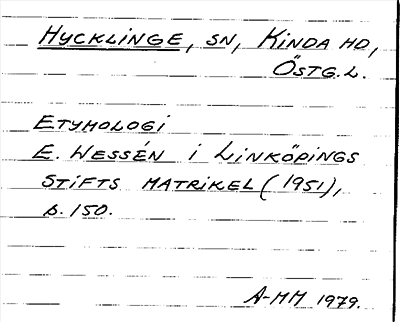 HYCKLINGE, SN, KINDA HD,
ÖSTG.L.
ETYMOLOGI
E. WESSÉN I LINKÖPINGS
STIFTS MATRIKEL (1951),
s. 150.
A-MM 1979.